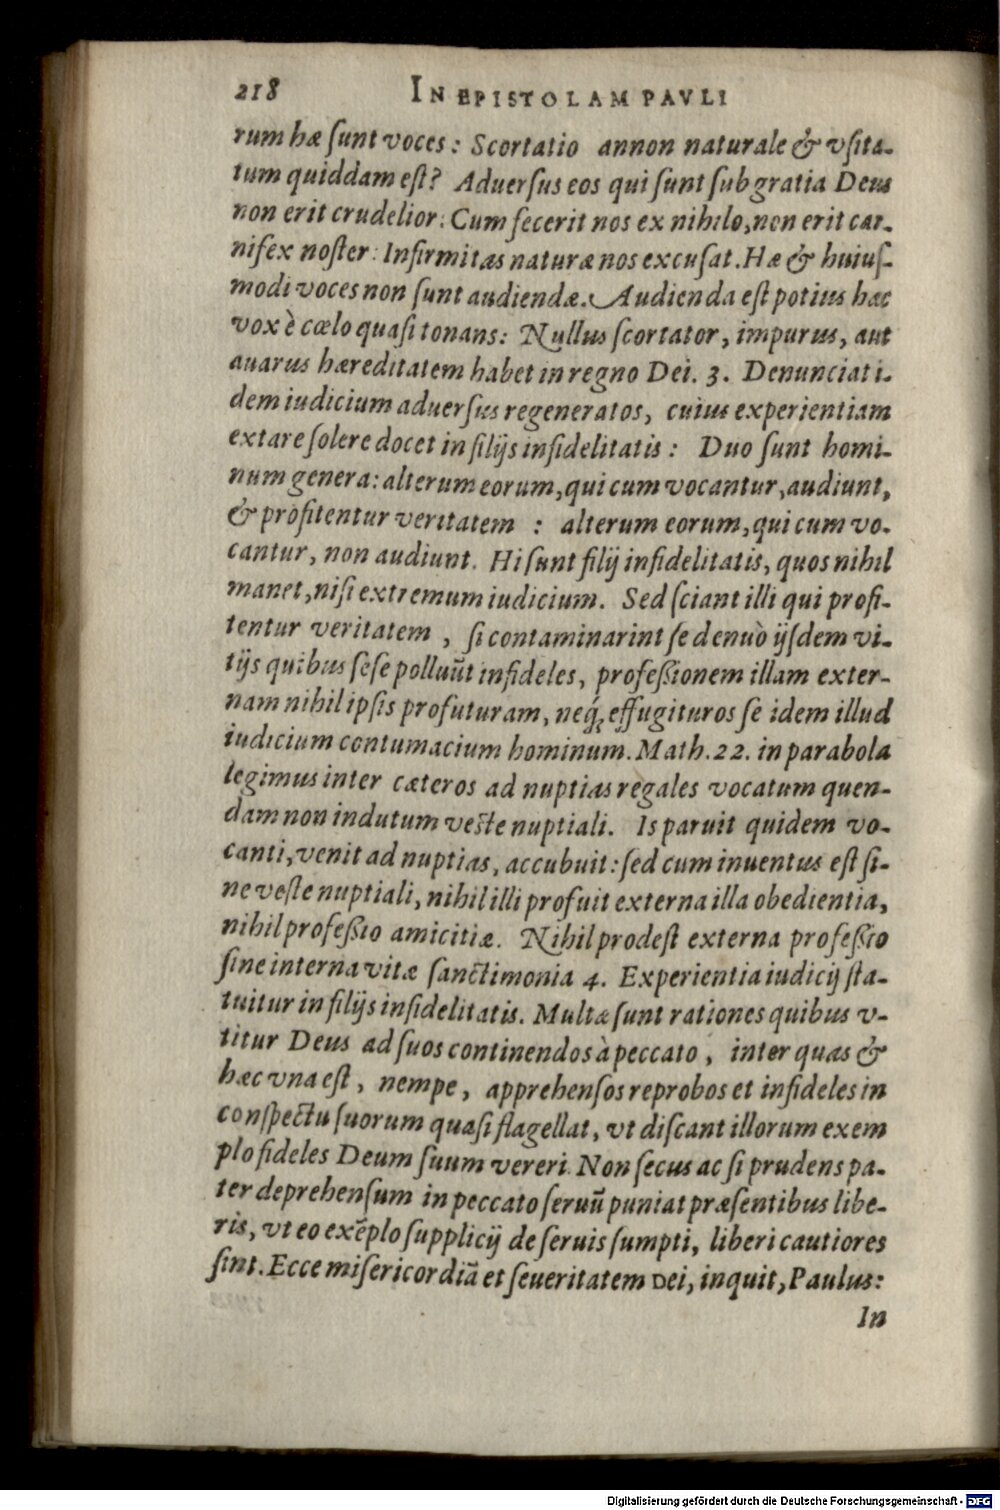 218 IN EPISTOLAM PAVLI
rum hæ ſunt voces: Scortatio annon naturale & vſita-
tum quiddam eſt? Aduerſus eos qui ſunt ſub gratia Deus
non erit crudelior: Cum fecerit nos ex nihilo, non erit car-
nifex noſter: Infirmitas naturæ nos excuſat. Hæ & huiuſ-
modi voces non ſunt audiendæ. Audienda eſt potius hæc
vox è cœlo quaſi tonans: Nullus ſcortator, impurus, aut
auarus hæreditatem habet in regno Dei. 3. Denunciat i-
dem iudicium aduerſus regeneratos, cuius experientiam
extare ſolere docet in filijs infidelitatis: Duo ſunt homi-
num genera: alterum eorum, qui cum vocantur, audiunt,
& profitentur veritatem : alterum eorum, qui cum vo-
cantur, non audiunt. Hi ſunt filij infidelitatis, quos nihil
manet, niſi extremum iudicium. Sed ſciant illi qui profi-
tentur veritatem , ſi contaminarint ſe denuò ijſdem vi-
tijs quibus ſeſe polluũt infideles, profeßionem illam exter-
nam nihil ipſis profuturam, neq́; effugituros ſe idem illud
iudicium contumacium hominum. Math. 22. in parabola
legimus inter cæteros ad nuptias regales vocatum quen-
dam non indutum veſte nuptiali. Is paruit quidem vo-
canti, venit ad nuptias, accubuit: ſed cum inuentus eſt ſi-
ne veſte nuptiali, nihil illi profuit externa illa obedientia,
nihil profeßio amicitiæ. Nihil prodeſt externa profeßio
ſine interna vitæ ſanctimonia 4. Experientia iudicij ſta-
tuitur in filijs infidelitatis. Multæ ſunt rationes quibus v-
titur Deus ad ſuos continendos à peccato , inter quas &
hæc vna eſt, nempe, apprehenſos reprobos et infideles in
conſpectu ſuorum quaſi flagellat, vt diſcant illorum exem
plo fideles Deum ſuum vereri. Non ſecus ac ſi prudens pa-
ter deprehenſum in peccato ſeruũ puniat præſentibus libe-
ris, vt eo exẽplo ſupplicij de ſeruis ſumpti, liberi cautiores
ſint. Ecce miſericordiã et ſeueritatem DEI, inquit, Paulus:
In
Digitalisierung gefördert durch die Deutsche Forschungsgemeinschaft - DFG